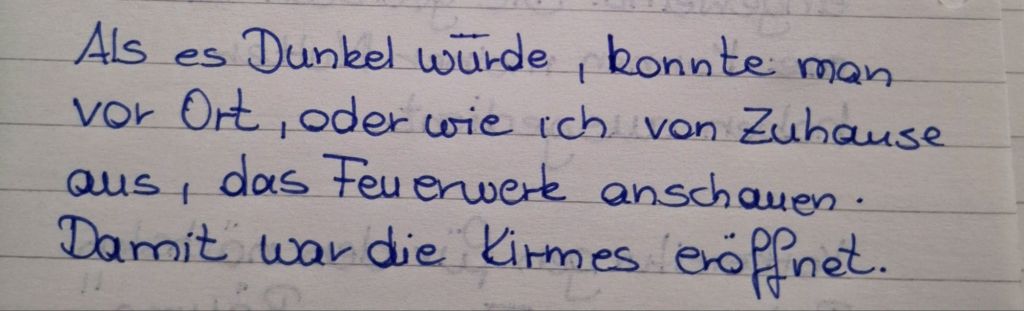 Als es Dunkel würde, konnte man
vor Ort, oder wie ich von Zuhause
aus, das Feuerwerk anschauen.
Damit war die Kirmes eröffnet.